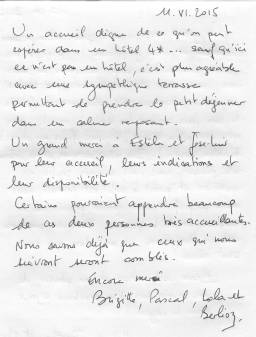 11.VI.2015
Un accueil digne de ce qu'on peut
espérer dans un hôtel 4*... sauf qu'ici
ce n'est pas un hôtel, c'est plus agréable
avec une sympathique terrasse
permettant de prendre le petit déjeuner
dans un calme reposant.
Un grand merci à Estela et José-Luis
pour leur accueil, leurs indications et
leur disponibilité.
Certains pourraient apprendre beaucoup
de ces deux personnes très accueillantes.
Nous savons déjà que ceux qui nous
suivront seront comblés.
Encore merci
Brigitte, Pascal, Lola et
Berlioz.